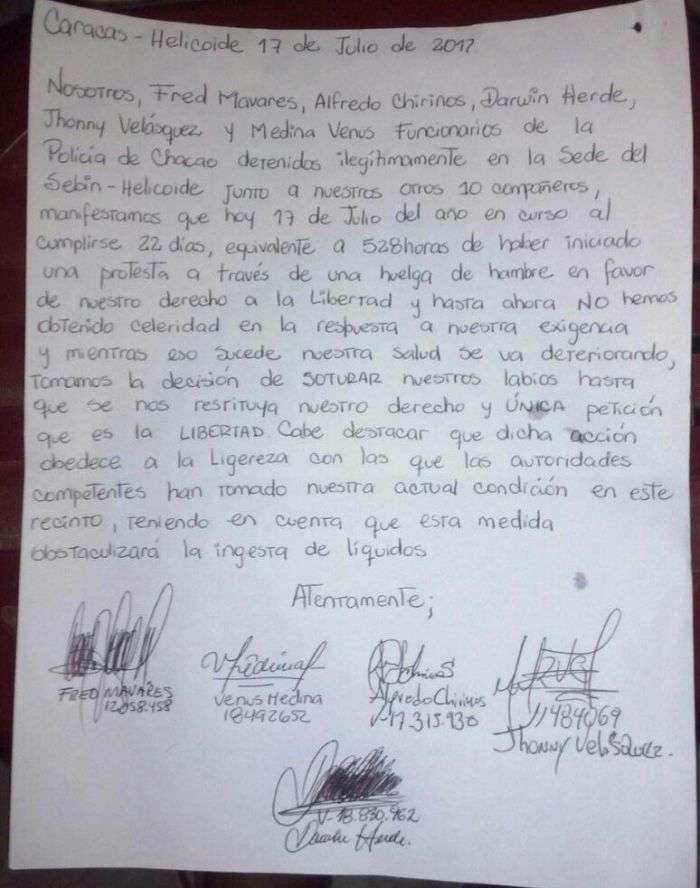 Caracas - Helicoide 17 de Julio de 2017
Nosotros, Fred Mavares, Alfredo Chirinos, Darwin Herde,
Jhonny Velásquez y Medina Venus Funcionarios de la
Policía de Chacao detenidos ilegítimamente en la Sede del
Sebin-Helicoide junto a nuestros otros 10 compañeros,
manifestamos que hoy 17 de Julio del año en curso al
cumplirse 22 días, equivalente a 528 horas de haber iniciado
una protesta a través de una huelga de hambre en favor
de nuestro derecho a la Libertad y hasta ahora NO hemos
obtenido celeridad en la respuesta a nuestra exigencia
y mientras eso sucede nuestra salud se va deteriorando,
tomamos la decisión de SOTURAR nuestros labios hasta
que se nos restituya nuestro derecho y ÚNICA petición
que es la LIBERTAD. Cabe destacar que dicha acción
obedece a la Ligereza con las que las autoridades
competentes han tomado nuestra actual condición en este
recinto, teniendo en cuenta que esta medida
obstaculizará la ingesta de líquidos
Atentamente;
FRED MAVARES
12.058.458
Venus Medina
18492652
Alfredo Chirinos
V-17.315.930
11484069
Jhonny Velásquez.
V-18.830.962
Darwin Herde.